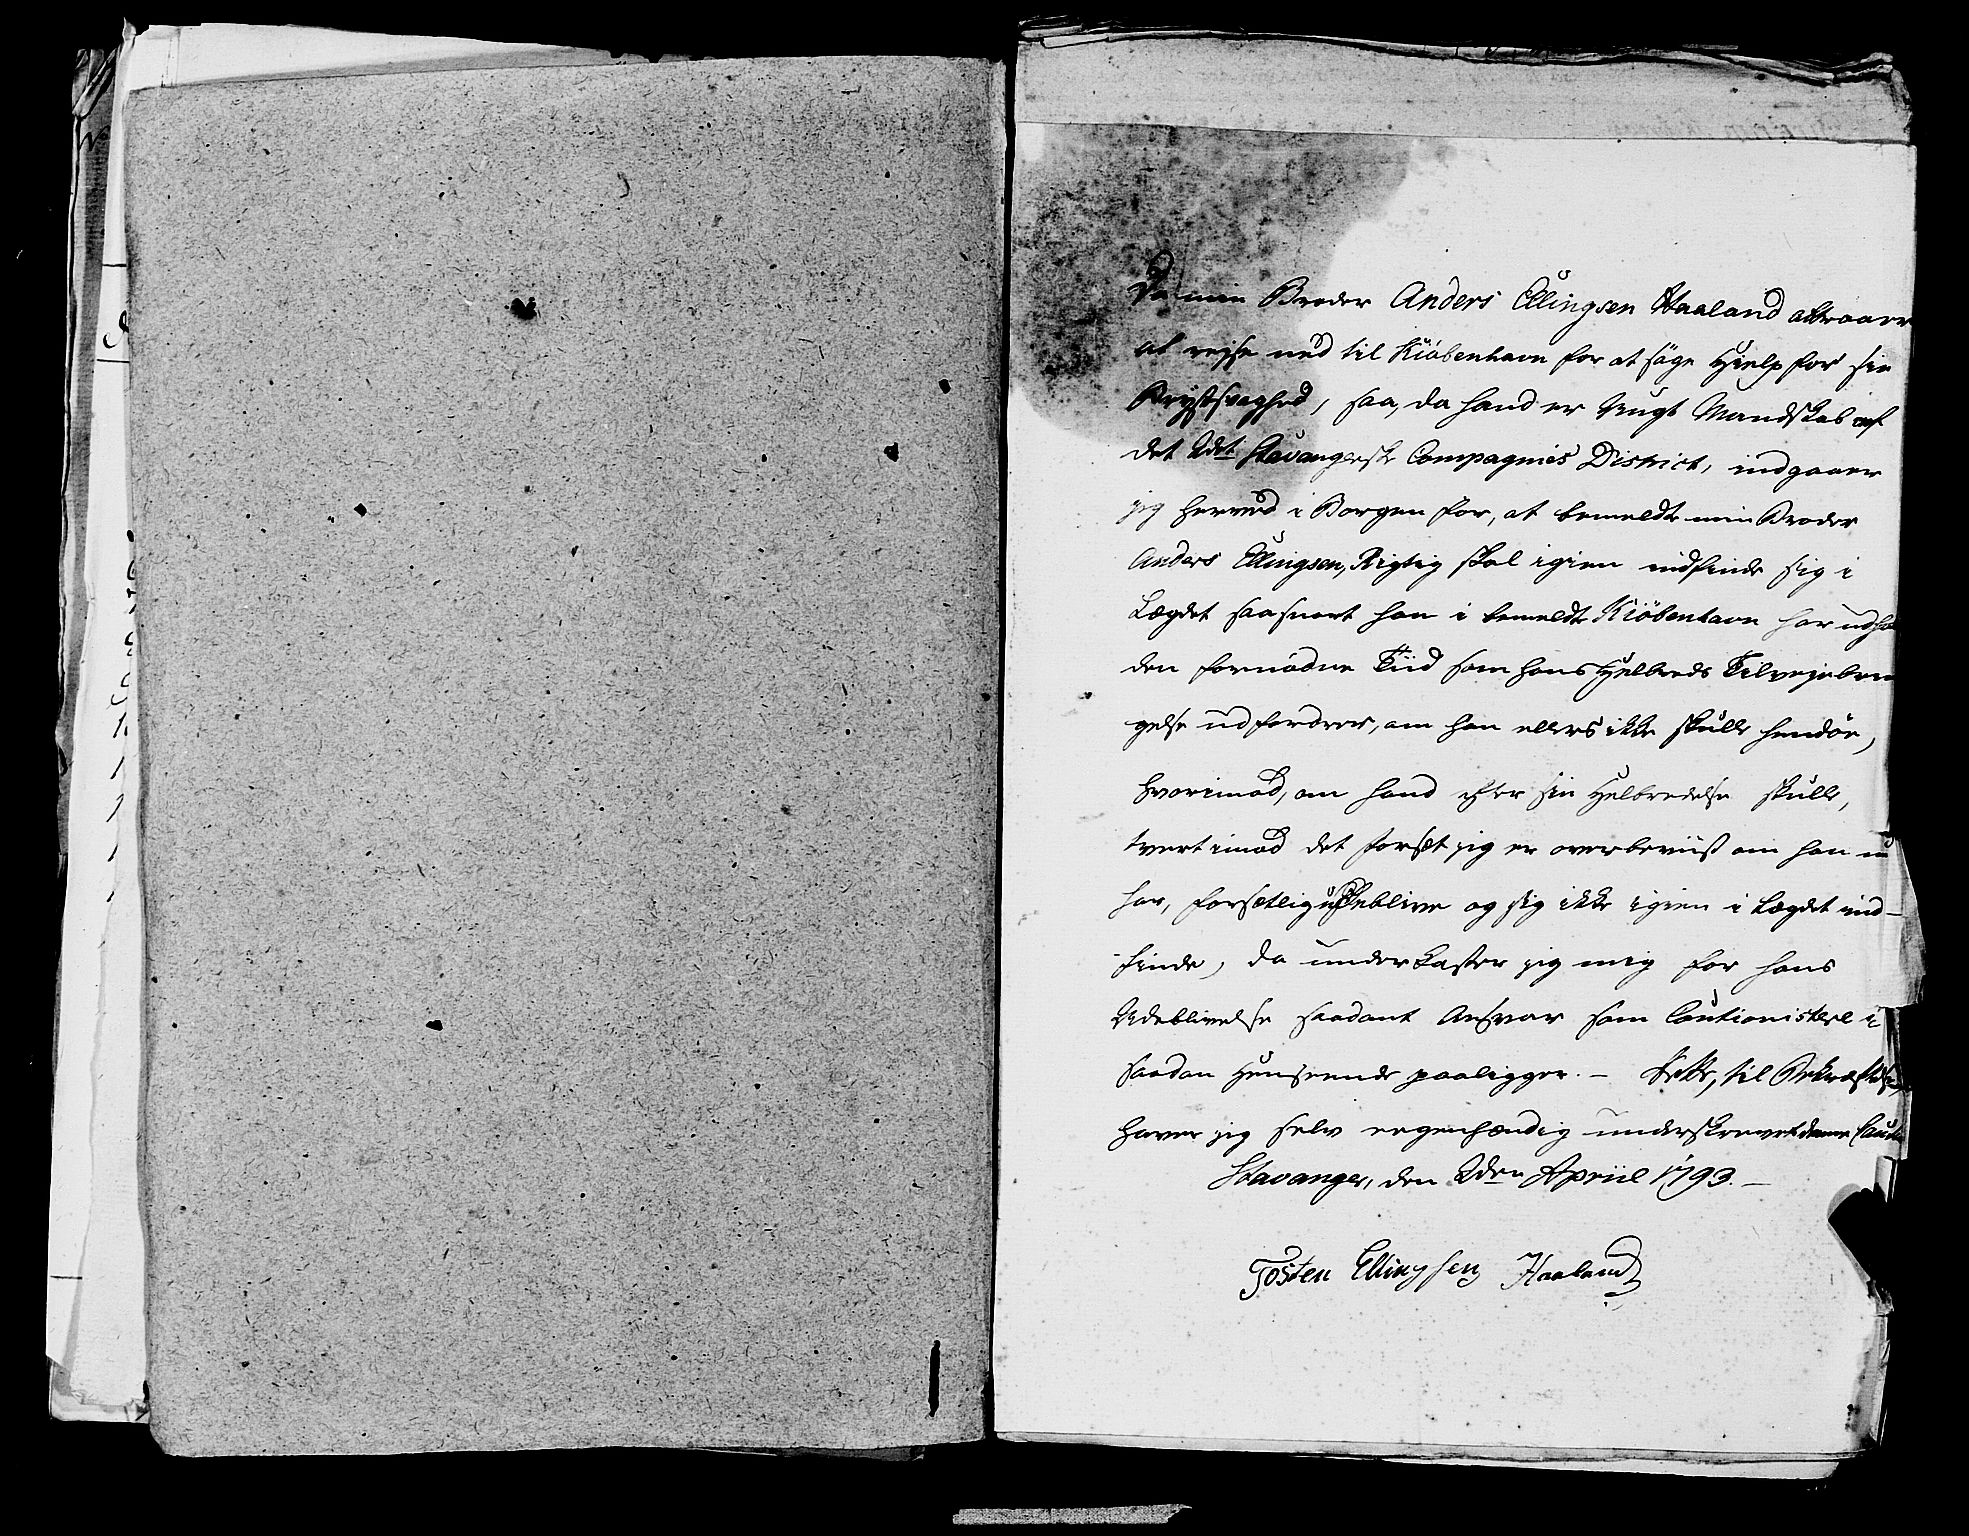 Da min Broder Anders Ellingsen Haaland attraaer
at rejse ned til Kiöbenhavn for at søge Hielp for sin
Brystsvaghed, saa, da hand er Ungt Mandskab af
det 2det Stavangerske Compagnies District, indgaaer
jeg herved i Borgen for, at bemeldte min Broder
Anders Ellingsen, Rigtig skal igien indfinde sig i
Lægdet saasnart han i bemeldte Kiöbenhavn har
den fornødne Tiid som hans Helbreds Tilvejebrin
gelse udfordrer, om han ellers ikke skulle hendøe,
hvorimod, om hand efter sin Helbredelse skulle,
tvertimod det Forsæt jeg er overbeviist om han nu
har, forsætlig udeblive og sig ikke igien i Lægdet ind-
finde, da underkaster jeg mig for hans
Udeblivelse saadant Ansvar som Cautionistere i
saadan Henseende paaligger. - Dette, til Bekræftelse
haver jeg selv egenhændig underskrevet denne
Stavanger, den 2den Apriil 1793. -
Tosten Ellingsen Haaland